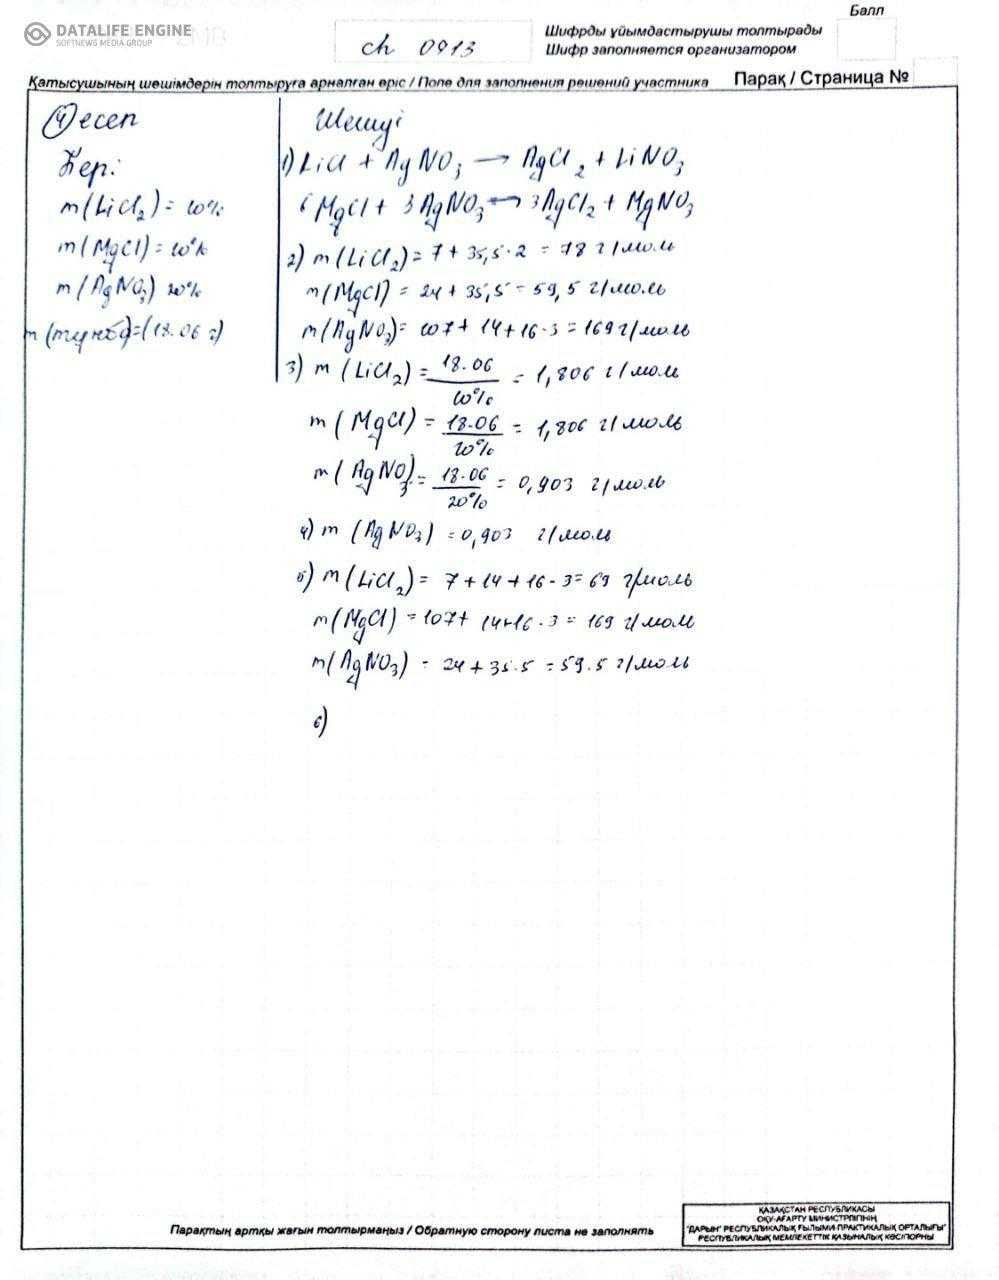 DATALIFE ENGINE
SOFTNEWS MEDIA GROUP
Балл
ch 0913
Шифрды ұйымдастырушы толтырады
Шифр заполняется организатором
Қатысушының шешімдерін толтыруға арналған өріс / Поле для заполнения решений участника
Парақ / Страница №
(4) есеп
Бер:
m(LiCl₂) = 10%
m(MgCl) = 10%
m(AgNO₃) 20%
m(тұнба)=(18.06 г)
Шешуі
1) LiCl + AgNO₃ → AgCl₂ + LiNO₃
6MgCl + 3AgNO₃ → 3AgCl₂ + MgNO₃
2) m(LiCl₂) = 7 + 35,5·2 = 78 г/моль
m(MgCl) = 24 + 35,5 = 59,5 г/моль
m(AgNO₃) = 107 + 14 + 16·3 = 169 г/моль
3) m(LiCl₂) = 18.06 / 10% = 1,806 г/моль
m(MgCl) = 18.06 / 10% = 1,806 г/моль
m(AgNO₃) = 18.06 / 20% = 0,903 г/моль
4) m(AgNO₃) = 0,903 г/моль
5) m(LiCl₂) = 7 + 14 + 16·3 = 69 г/моль
m(MgCl) = 107 + 14 + 16·3 = 169 г/моль
m(AgNO₃) = 24 + 35.5 = 59.5 г/моль
6)
Парақтың артқы жағын толтырмаңыз / Обратную сторону листа не заполнять
ҚАЗАҚСТАН РЕСПУБЛИКАСЫ
ОҚУ-АҒАРТУ МИНИСТРЛІГІНІҢ
"ДАРЫН" РЕСПУБЛИКАЛЫҚ ҒЫЛЫМИ-ПРАКТИКАЛЫҚ ОРТАЛЫҒЫ"
РЕСПУБЛИКАЛЫҚ МЕМЛЕКЕТТІК ҚАЗЫНАЛЫҚ КӘСІПОРНЫ